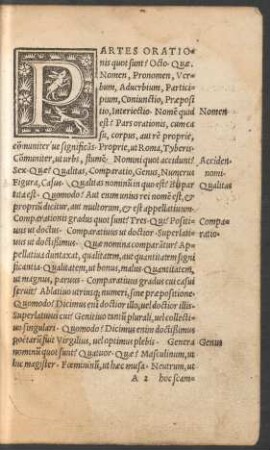 PARTES ORATIO-
nis quot sunt? Octo. Quæ.
Nomen, Pronomen, Ver-
bum, Aduerbium, Partici-
pium, Coniunctio, Præposi
tio, Interiectio. Nomẽ quid Nomen
est? Pars orationis, cum ca
su, corpus, aut rẽ proprie,
cõmuniter ue significãs. Proprie, ut Roma, Tyberis.
Cõmuniter, ut urbs, flumẽ. Nomini quot accidunt? Acciden.
Sex. Quæ? Qualitas, Comparatio, Genus, Numerus nomi.
Figura, Casus. Qualitas nominũ in quo est? Bipar Qualitas
tita est. Quomodo? Aut enim unius rei nomẽ est, &
propriũ dicitur, aut multorum, & est appellatiuum.
Comparationis gradus quot sunt? Tres. Quę? Positi- Compa-
uus ut doctus. Comparatiuus ut doctior. Superlati- ratio.
uus ut doctissimus. Quæ nomina comparãtur? Ap-
pellatiua duntaxat, qualitatẽ, aut quantitatem signi
ficancia. Qualitatem, ut bonus, malus. Quantitatem,
ut magnus, paruus. Comparatiuus gradus cui casui
seruit? Ablatiuo utriusq; numeri, sine præpositione.
Quomodo? Dicimus enim doctior illo, uel doctior illis.
Superlatiuus cui? Genitiuo tantũ plurali, uel collecti-
uo singulari. Quomodo? Dicimus enim doctissimus
poëtarũ fuit Virgilius, uel optimus plebis. Genera Genus
nominũ quot sunt? Quatuor. Quæ? Masculinum, ut
hic magister. Fœmininũ, ut hæc musa. Neutrum, ut
A 2 hoc scam-